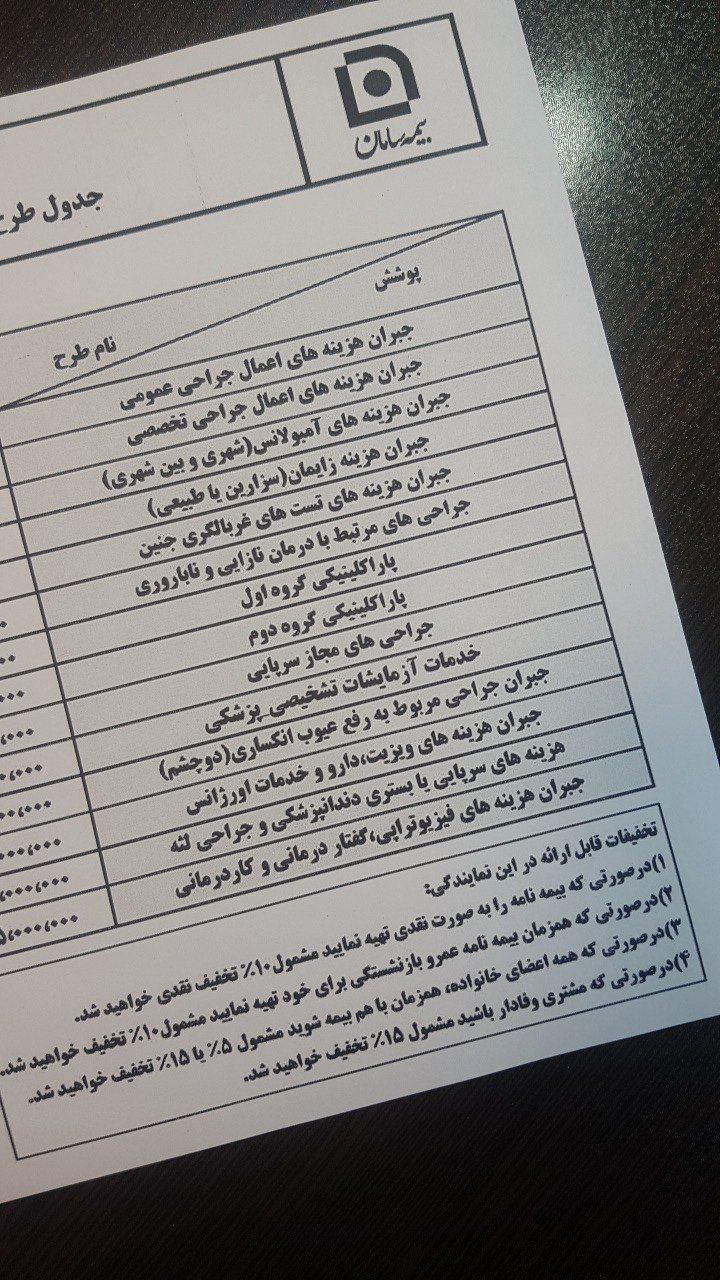 بیمه سامان
جدول طرح
پوشش
نام طرح
جبران هزینه های اعمال جراحی عمومی
جبران هزینه های اعمال جراحی تخصصی
جبران هزینه های آمبولانس(شهری و بین شهری)
جبران هزینه زایمان(سزارین یا طبیعی)
جبران هزینه های تست های غربالگری جنین
جراحی های مرتبط با درمان نازایی و ناباروری
پاراکلینیکی گروه اول
پاراکلینیکی گروه دوم
جراحی های مجاز سرپایی
خدمات آزمایشات تشخیصی_پزشکی
جبران جراحی مربوط به رفع عیوب انکساری(دوچشم)
جبران هزینه های ویزیت،دارو و خدمات اورژانس
هزینه های سرپایی یا بستری دندانپزشکی و جراحی لثه
جبران هزینه های فیزیوتراپی،گفتار درمانی و کاردرمانی
تخفیفات قابل ارائه در این نمایندگی:
۱)درصورتی که بیمه نامه را به صورت نقدی تهیه نمایید مشمول۱۰٪ تخفیف نقدی خواهید شد.
۲)درصورتی که همزمان بیمه نامه عمرو بازنشستگی برای خود تهیه نمایید مشمول۱۰٪ تخفیف خواهید شد.
۳)درصورتی که همه اعضای خانواده، همزمان با هم بیمه شوید مشمول ۵٪ یا ۱۵٪ تخفیف خواهید شد.
۴)درصورتی که مشتری وفادار باشید مشمول ۱۵٪ تخفیف خواهید شد.